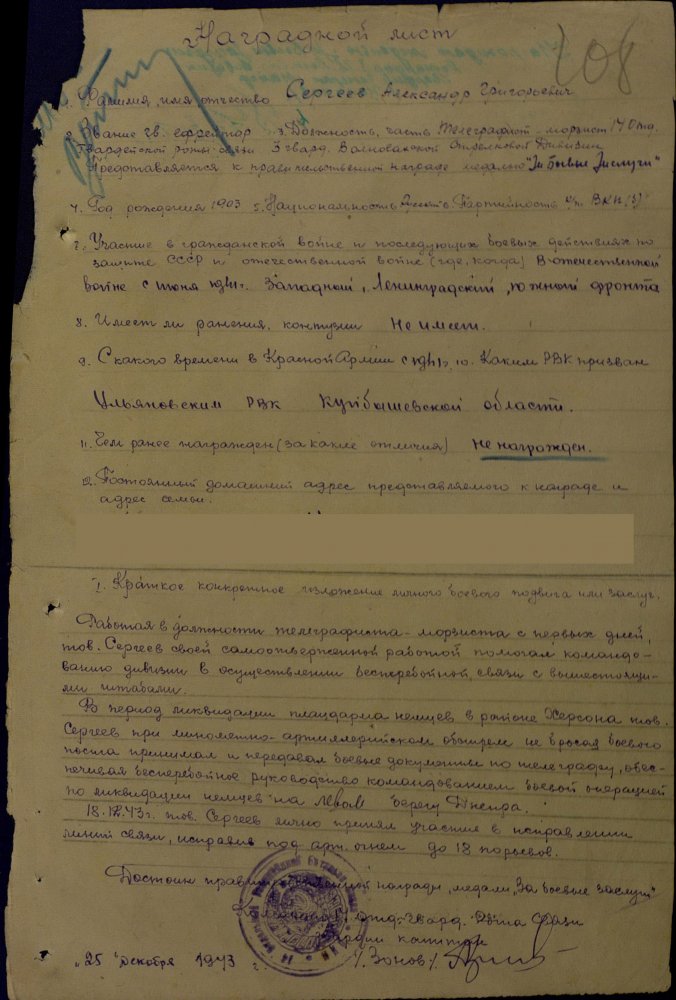 Наградной лист
108
1. Фамилия, имя, отчество Сергеев Александр Григорьевич
2. Звание гв. ефрейтор 3. Должность, часть Телеграфист-морзист 14 Отд.
Гвардейской роты связи 3 гвард. Волновахской Стрелковой Дивизии
Представляется к правительственной награде медалью "За боевые заслуги"
4. Год рождения 1903 5. Национальность 6. Партийность ВКП(б)
7. Участие в гражданской войне и последующих боевых действиях по
защите СССР и отечественной войне (где, когда) В отечественной
войне с июня 1941 г. Западной, Ленинградский, южной фронта
8. Имеет ли ранения, контузии Не имеет.
9. С какого времени в Красной Армии с 1941 г. 10. Каким РВК призван
Ульяновским РВК Куйбышевской области.
11. Чем ранее награжден (за какие отличия) Не награжден.
12. Постоянный домашний адрес представляемого к награде и
адрес семьи.
I. Краткое конкретное изложение личного боевого подвига или заслуг.
Работая в должности телеграфиста-морзиста с первых дней,
тов. Сергеев своей самоотверженной работой помогал командо-
ванию дивизии в осуществлении бесперебойной связи с вышестоящи-
ми штабами.
В период ликвидации плацдарма немцев в районе Херсона тов.
Сергеев при минометно-артиллерийском обстреле не бросая боевого
поста принимал и передавал боевые документы по телеграфу, обес-
печивая бесперебойное руководство командованием боевой операцией
по ликвидации немцев на левом берегу Днепра.
18.12.43 г. тов. Сергеев лично принял участие в исправлении
линий связи, исправив под арт. огнем до 18 порывов.
Достоин правительственной награды, медали "За боевые заслуги"
Отд. Гвард. Связи
Гвардии капитан
"25" Декабря 1943 г. /Зонов/